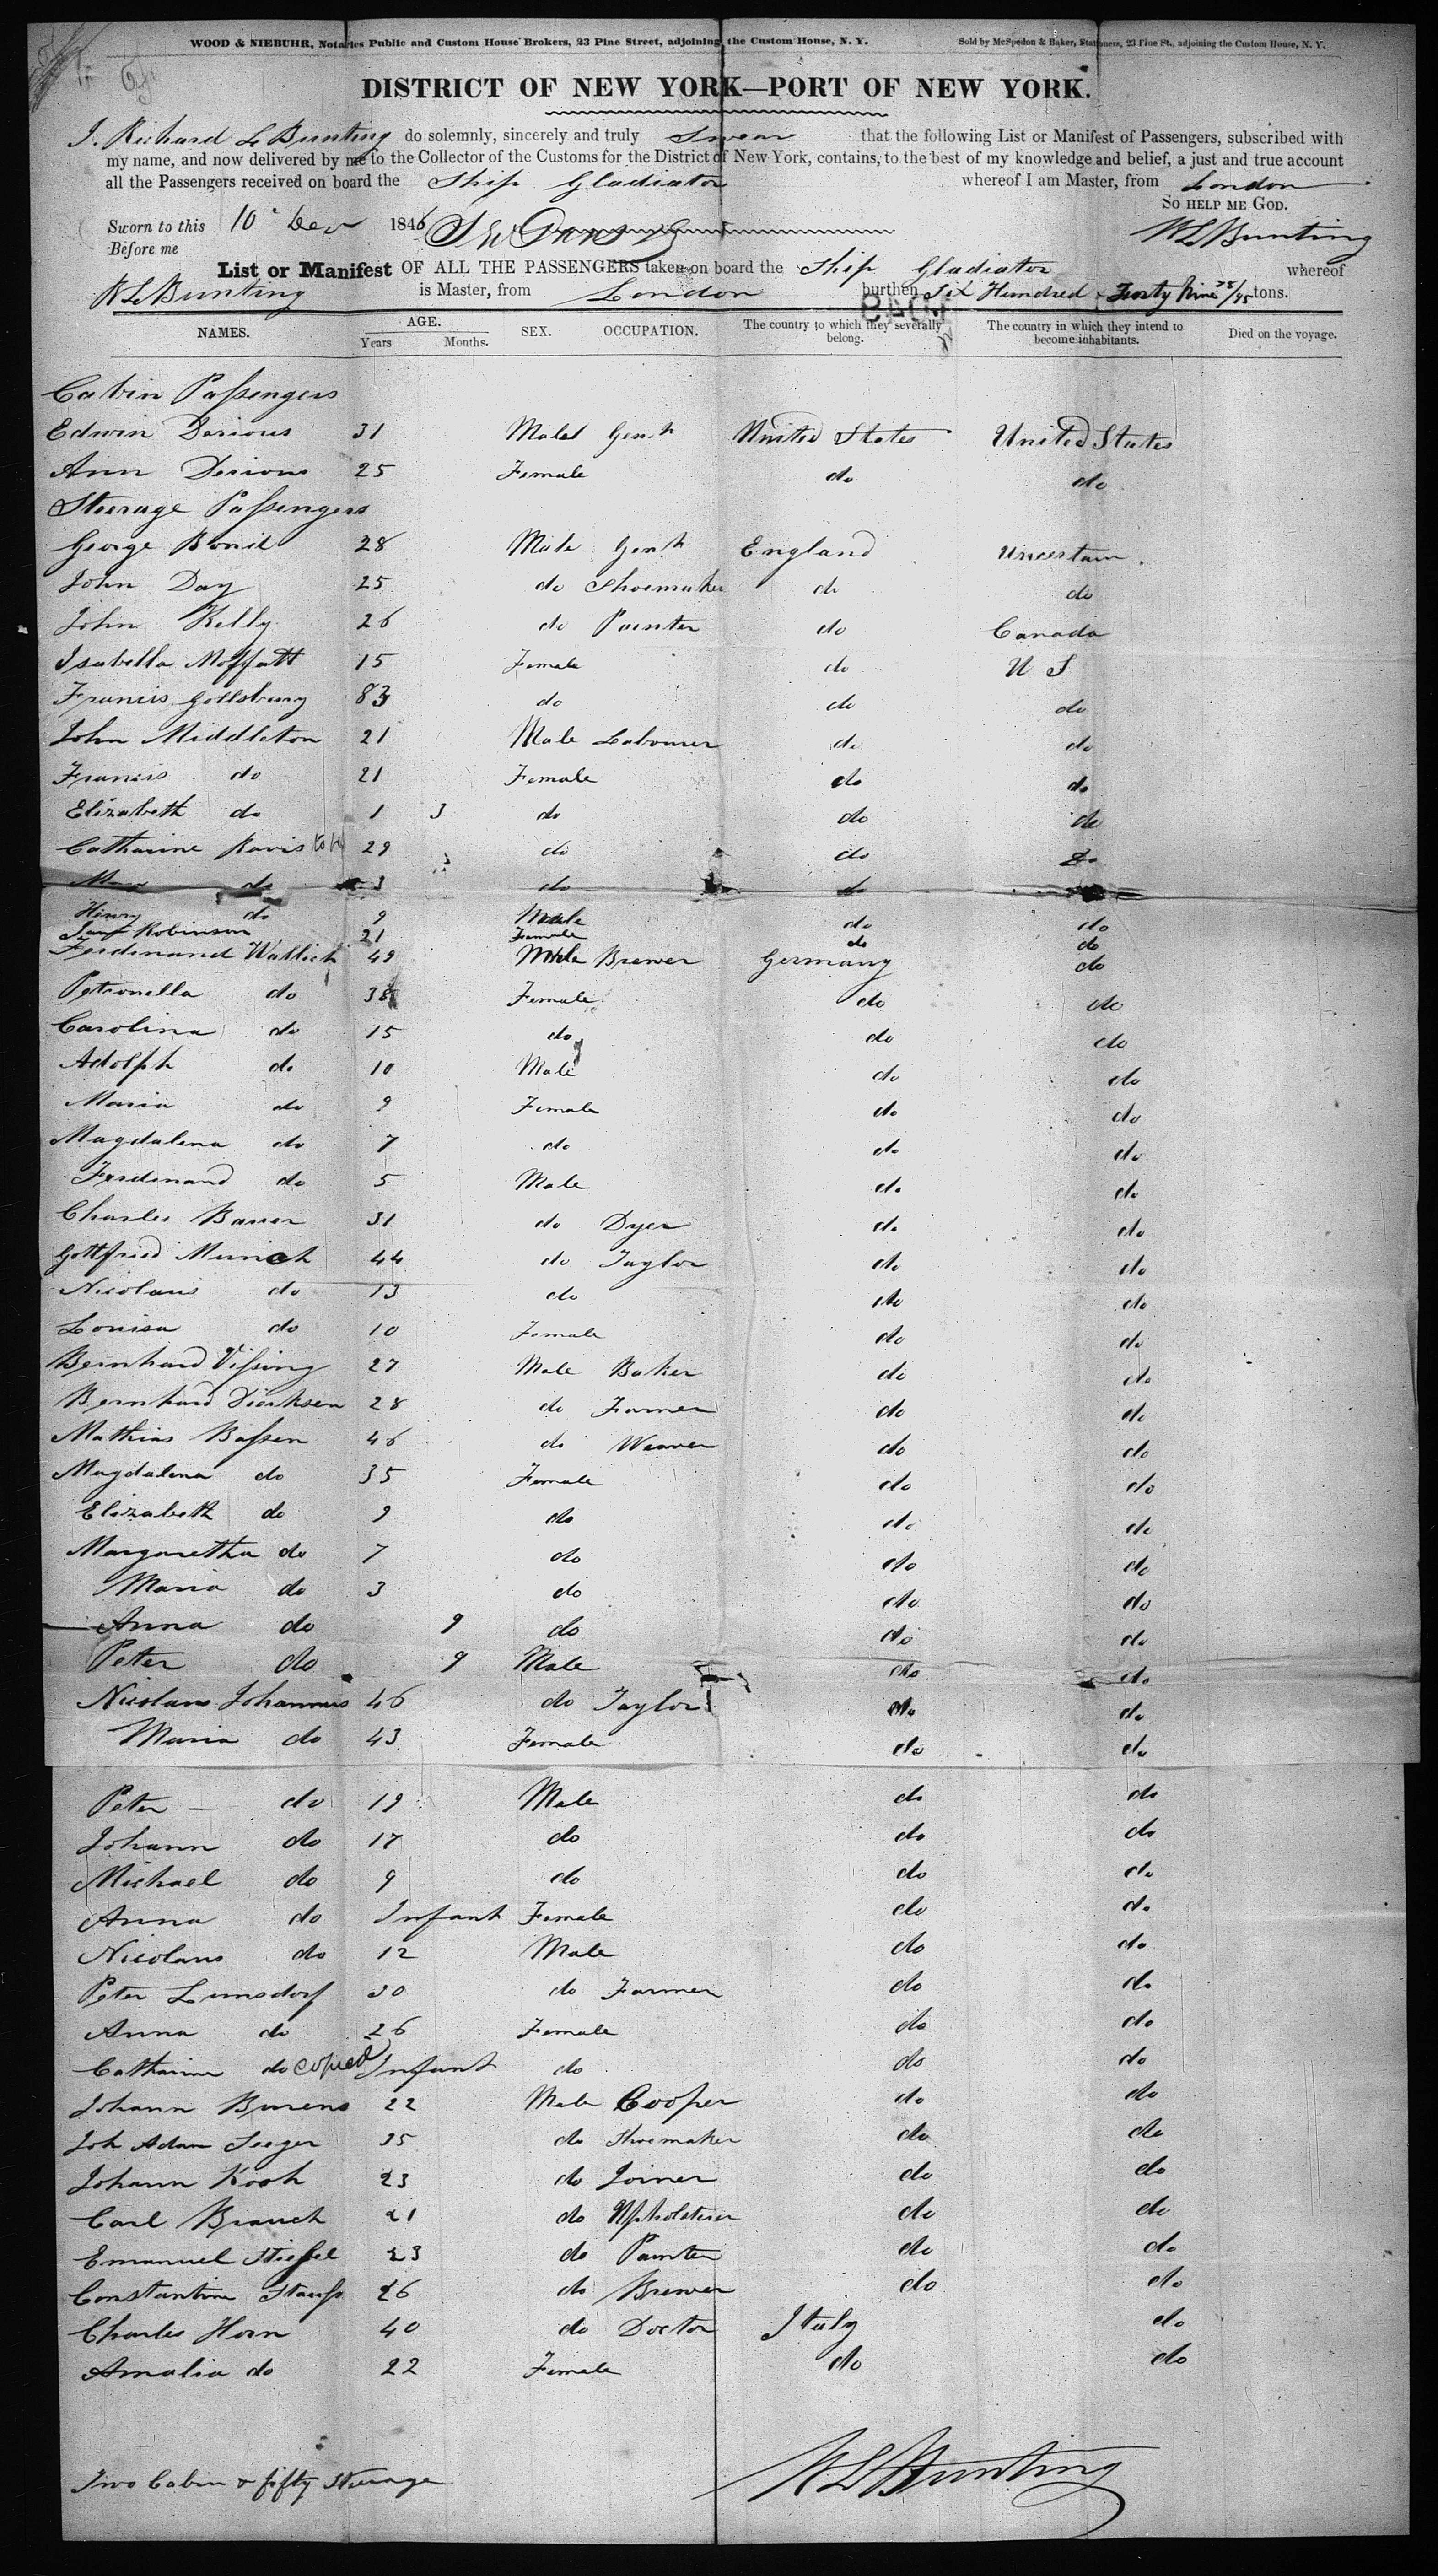 WOOD & NIEBUHR, Notaries Public and Custom House Brokers, 23 Pine Street, adjoining the Custom House, N. Y. Sold by McSpedon & Baker, Stationers, 23 Pine St., adjoining the Custom House, N. Y.
DISTRICT OF NEW YORK—PORT OF NEW YORK.
I, Richard L Bunting do solemnly, sincerely and truly Swear that the following List or Manifest of Passengers, subscribed with
my name, and now delivered by me to the Collector of the Customs for the District of New York, contains, to the best of my knowledge and belief, a just and true account
all the Passengers received on board the Ship Gladiator whereof I am Master, from London
SO HELP ME GOD.
Sworn to this 10 Dec 1846
Before me
R L Bunting
List or Manifest OF ALL THE PASSENGERS taken on board the Ship Gladiator whereof
R L Bunting is Master, from London burthen Six Hundred & Forty Nine 75/95 tons.
NAMES. AGE. Years Months. SEX. OCCUPATION. The country to which they severally belong. The country in which they intend to become inhabitants. Died on the voyage.
Cabin Passengers
Edwin Derious 31 Male Gent United States United States
Ann Derious 25 Female do do
Steerage Passengers
George Bonil 28 Male Gent England Uncertain.
John Day 25 do Shoemaker do do
John Kelly 26 do Painter do Canada
Isabella Moffatt 15 Female do U S
Francis Gollsbury 83 do do do
John Middleton 21 Male Labourer do do
Francis do 21 Female do do
Elizabeth do 1 3 do do do
Catharine Ravis 29 do do do
do 3 do do
Henry do 9 Male do do
Jane Robinson 21 Female do do
Ferdinand Wallich 49 Male Brewer Germany do
Petronella do 38 Female do do
Carolina do 15 do do do
Adolph do 10 Male do do
Maria do 9 Female do do
Magdalena do 7 do do do
Ferdinand do 5 Male do do
Charles Bauer 31 do Dyer do do
Gottfried Munich 44 do Taylor do do
Nicolaus do 13 do do do
Louisa do 10 Female do do
Bernhard Vissing 27 Male Baker do do
Bernhard Dierksen 28 do Farmer do do
Mathias Bassen 46 do Weaver do do
Magdalena do 35 Female do do
Elizabeth do 9 do do do
Margaretha do 7 do do do
Maria do 3 do do do
Anna do 9 do do do
Peter do 9 Male do do
Nicolaus Johannes 46 do Taylor do do
Maria do 43 Female do do
Peter do 19 Male do do
Johann do 17 do do do
Michael do 9 do do do
Anna do Infant Female do do
Nicolaus do 12 Male do do
Peter Lumsdorf 30 do Farmer do do
Anna do 26 Female do do
Catharina do copied Infant do do do
Johann Burens 22 Male Cooper do do
Joh Adam Seeger 35 do Shoemaker do do
Johann Koch 23 do Joiner do do
Carl Brauch 21 do Upholsterer do do
Emanuel Stiefel 23 do Painter do do
Constantin Stauss 26 do Brewer do do
Charles Horn 40 do Doctor Italy do
Amalia do 22 Female do do
Two Cabin & fifty Steerage R L Bunting